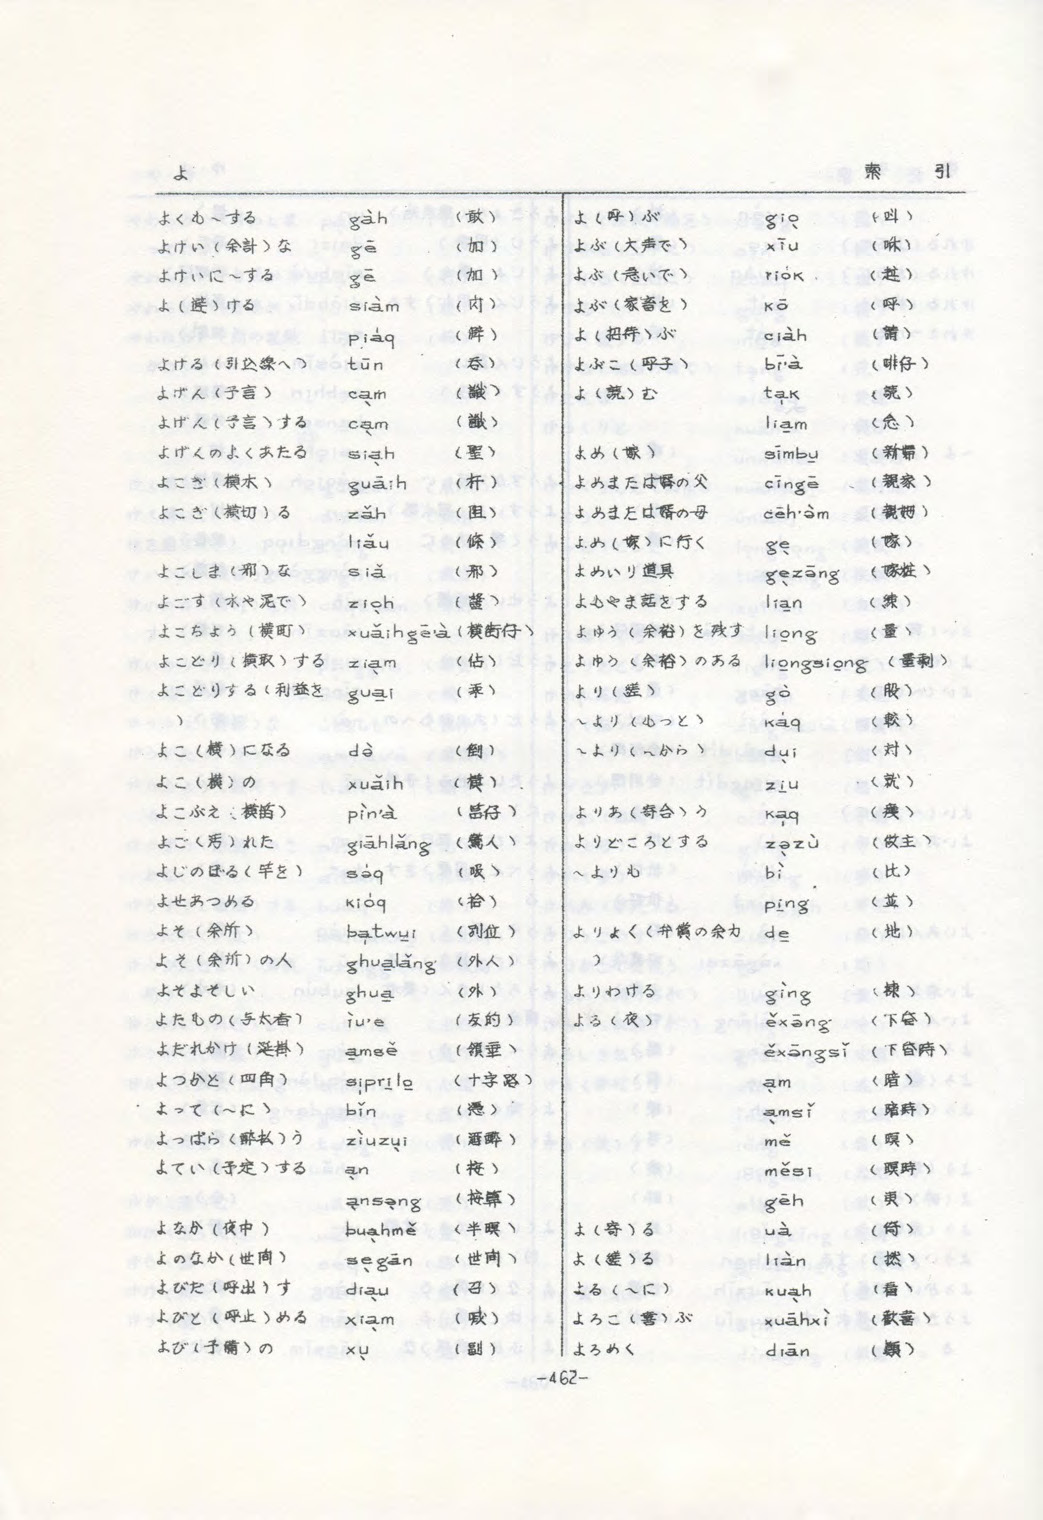 よ 索引
よくも~する gàh (敢)
よけい(余計)な gē (加)
よけいに~する gē (加)
よ(避)ける siàm (闪)
piáq
よける(引込線へ) tūn (呑)
よげん(予言) cạm (讖)
よげん(予言)する cạm (讖)
よげんのよくあたる siạh (聖)
よこぎ(横木) guāih (杆)
よこぎ(横切)る zǎh (阻)
liǎu (條)
よこしま(邪)な siǎ (邪)
よごす(水や泥で) zịoh (醬)
よこちょう(横町) xuǎihgēà (横街仔)
よこどり(横取)する zịạm (佔)
よこどりする(利益を guại (乖)
)
よこ(横)になる dè (倒)
よこ(横)の xuǎih (横)
よこぶえ(横笛) pìn'à
よご(汚)れた giāhlǎng (驚人)
よじのぼる(竿を) sóq
よせあつめる kióq (拾)
よそ(余所) bạtwụi (別位)
よそ(余所)の人 ghuạlǎng (外人)
よそよそしい ghuạ (外)
よたもの(与太者) ìu'e (友的)
よだれかけ(涎掛) ạmsě (領垂)
よつかど(四角) sịprịlọ (十字路)
よって(~に) bǐn (憑)
よっぱら(酔払)う zìuzụi (酒酔)
よてい(予定)する ạn (按)
ạnsạng (按算)
よなか(夜中) buạhmě (半暝)
よのなか(世間) sẹgān (世間)
よびだ(呼出)す diạu (召)
よびと(呼止)める xiạm (喊)
よび(予備)の xụ (副)
よ(呼)ぶ giọ (叫)
よぶ(大声で) xīu (咻)
よぶ(急いで) riók
よぶ(家畜を) kō (呼)
よ(招待)ぶ ciàh (請)
よぶこ(呼子) bī'à (啡仔)
よ(読)む tạk (読)
liạm (念)
よめ(嫁) sīmbụ (新婦)
よめまたは婿の父 cīngē (親家)
よめまたは婿の母 cēh'àm (親姆)
よめ(嫁)に行く gẹ (嫁)
よめいり道具 gẹzāng (嫁粧)
よもやま話をする liạn (練)
よゆう(余裕)を残す liọng (量)
よゆう(余裕)のある liọngsiọng (量剰)
より(縒) gò (股)
~より(もっと) káq (較)
~より(~から) dụi (対)
zịu (就)
よりあ(寄合)う kạq
よりどころとする zạzù (做主)
~よりも bì (比)
pịng (並)
よりよく(弁償の余力 dẹ (地)
)
よりわける gìng (揀)
よる(夜) ěxāng (下昏)
ěxāngsǐ (下昏時)
ạm (暗)
ạmsǐ (暗時)
mě (暝)
měsi (暝時)
gēh (更)
よ(寄)る uà (倚)
よ(縒)る liàn (撚)
よる(~に) kuạh (看)
よろこ(喜)ぶ xuāhxì (歓喜)
よろめく diān (顛)
-462-